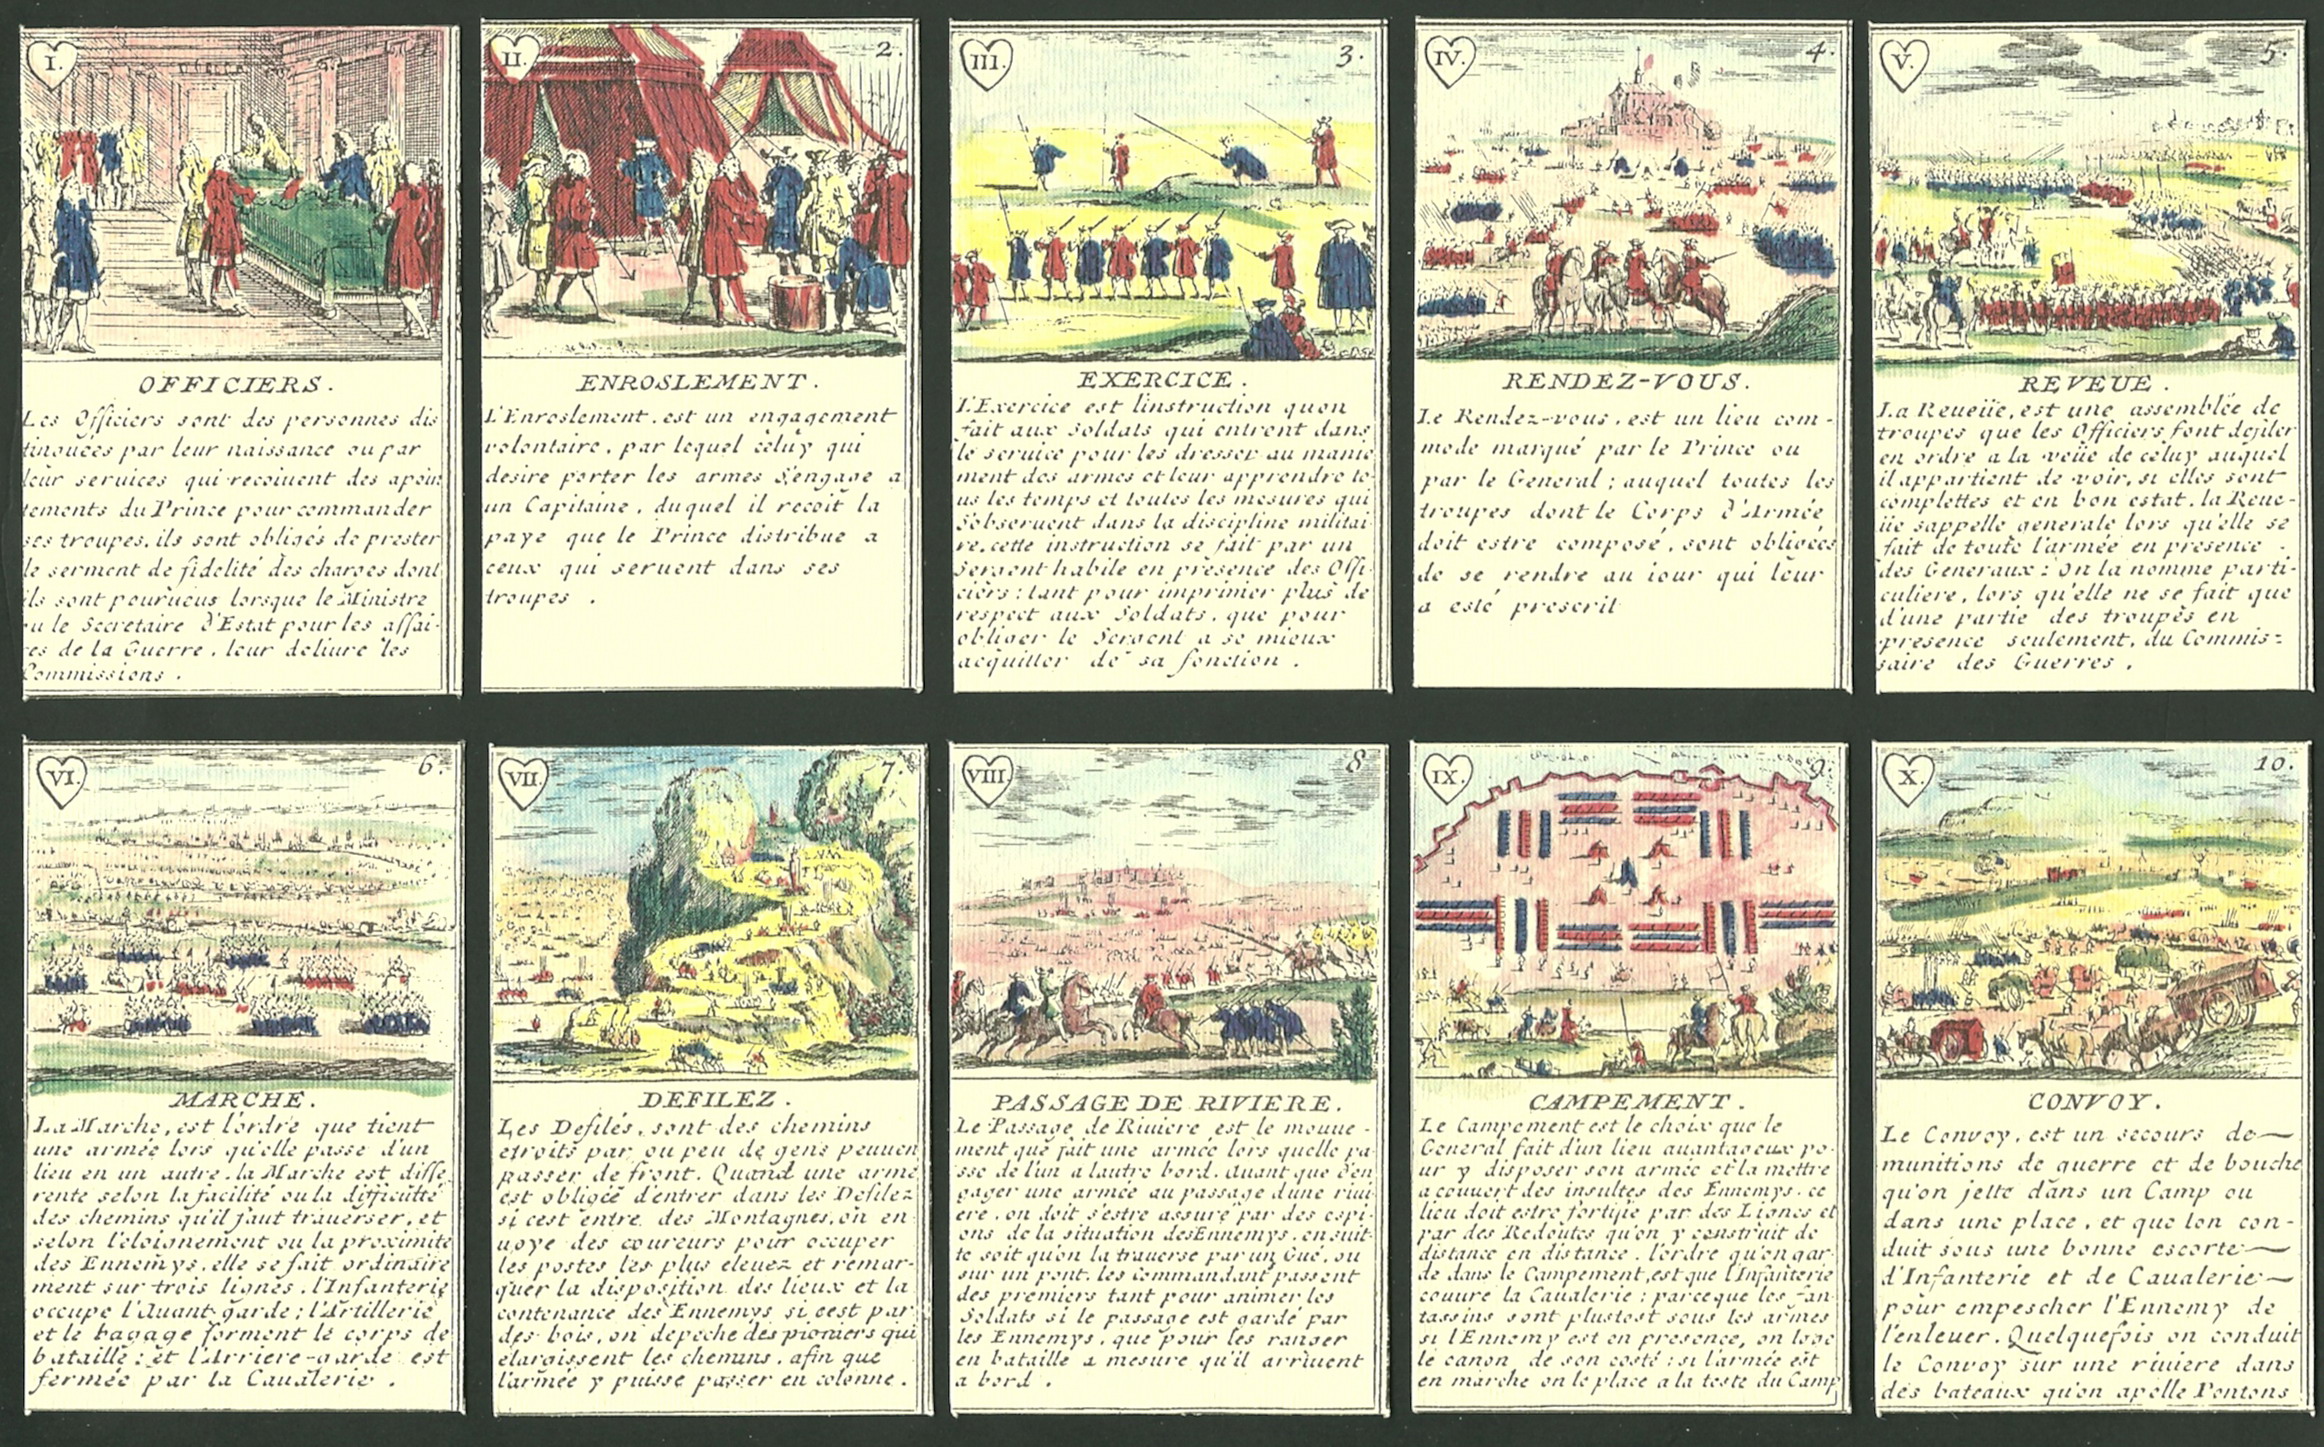 I.
1.
OFFICIERS.
Les Officiers sont des personnes dis
tinguées par leur naissance ou par
leur seruices qui recoiuent des apoin
tements du Prince pour commander
ses troupes, ils sont obligés de prester
le serment de fidelité des charges dont
ils sont pourueus lorsque le Ministre
ou le Secretaire d'Estat pour les affai-
res de la Guerre, leur deliure les
Commissions.
II.
2.
ENROSLEMENT.
L'Enroslement, est un engagement
volontaire, par lequel celuy qui
desire porter les armes s'engage a
un Capitaine, duquel il recoit la
paye que le Prince distribue a
ceux qui seruent dans ses
troupes.
III.
3.
EXERCICE.
L'Exercice est l'instruction quon
fait aux soldats qui entrent dans
le seruice pour les dresser au manie
ment des armes et leur apprendre to-
us les temps et toutes les mesures qui
s'obseruent dans la discipline militai-
re, cette instruction se fait par un
Sergent habile en presence des Offi-
ciers: tant pour imprimer plus de
respect aux Soldats, que pour
obliger le Sergent a se mieux
acquitter de sa fonction.
IV.
4.
RENDEZ-VOUS.
Le Rendez-vous, est un lieu com-
mode marqué par le Prince ou
par le General; auquel toutes les
troupes dont le Corps d'Armée
doit estre composé, sont obligées
de se rendre au iour qui leur
a esté prescrit
V.
5.
REVEUE.
La Reueüe, est une assemblée de
troupes que les Officiers font defiler
en ordre a la veüe de celuy auquel
il appartient de voir, si elles sont
complettes et en bon estat. la Reue-
üe sappelle generale lors qu'elle se
fait de toute l'armée en presence
des Generaux: on la nomme parti-
culiere, lors qu'elle ne se fait que
d'une partie des troupes en
presence seulement, du Commis=
saire des Guerres.
VI.
6.
MARCHE.
La Marche, est l'ordre que tient
une armée lors qu'elle passe d'un
lieu en un autre. la Marche est diffe
rente selon la facilité ou la difficulté
des chemins qu'il faut trauerser, et
selon l'eloignement ou la proximité
des Ennemys. elle se fait ordinaire
ment sur trois lignes. l'Infanterie
occupe l'Auant-garde; l'Artillerie
et le bagage forment le corps de
bataille; et l'Arriere-garde est
fermée par la Caualerie.
VII.
7.
DEFILEZ.
Les Defilés, sont des chemins
etroits par ou peu de gens peuuen
passer de front. Quand une armé
est obligée d'entrer dans les Defilez
si cest entre des Montagnes, on en
uoye des coureurs pour occuper
les postes les plus eleuez et remar-
quer la disposition des lieux et la
contenance des Ennemys si cest par
des bois, on depeche des pioniers qui
elargissent les chemins, afin que
l'armée y puisse passer en colonne.
VIII.
8
PASSAGE DE RIVIERE.
Le Passage de Riuiere est le mouue-
ment que fait une armée lors quelle pa-
sse de l'un a lautre bord. Auant que d'en
gager une armée au passage d'une riui
ere, on doit s'estre assuré par des espi-
ons de la situation des Ennemys. ensuit-
te soit qu'on la trauerse par un Gué, ou
sur un pont. les commandant passent
des premiers tant pour animer les
Soldats si le passage est gardé par
les Ennemys, que pour les ranger
en bataille a mesure qu'il arriuent
a bord.
IX.
9.
CAMPEMENT.
Le Campement est le choix que le
General fait d'un lieu auantageux po-
ur y disposer son armée et la mettre
a couuert des insultes des Ennemys. ce
lieu doit estre fortifié par des Lignes et
par des Redoutes qu'on y construit de
distance en distance. l'ordre qu'on gar-
de dans le Campement, est que l'Infanterie
couure la Caualerie: parceque les fan-
tassins sont plustost sous les armes
si l'Ennemy est en presence, on loge
le canon de son costé: si l'armée est
en marche on le place a la teste du Camp
X.
10.
CONVOY.
Le Convoy, est un secours de
munitions de guerre et de bouche
qu'on jette dans un Camp ou
dans une place, et que lon con-
duit sous une bonne escorte
d'Infanterie et de Caualerie
pour empescher l'Ennemy de
l'enleuer. Quelquefois on conduit
le Convoy sur une riuiere dans
des bateaux qu'on apelle Pontons